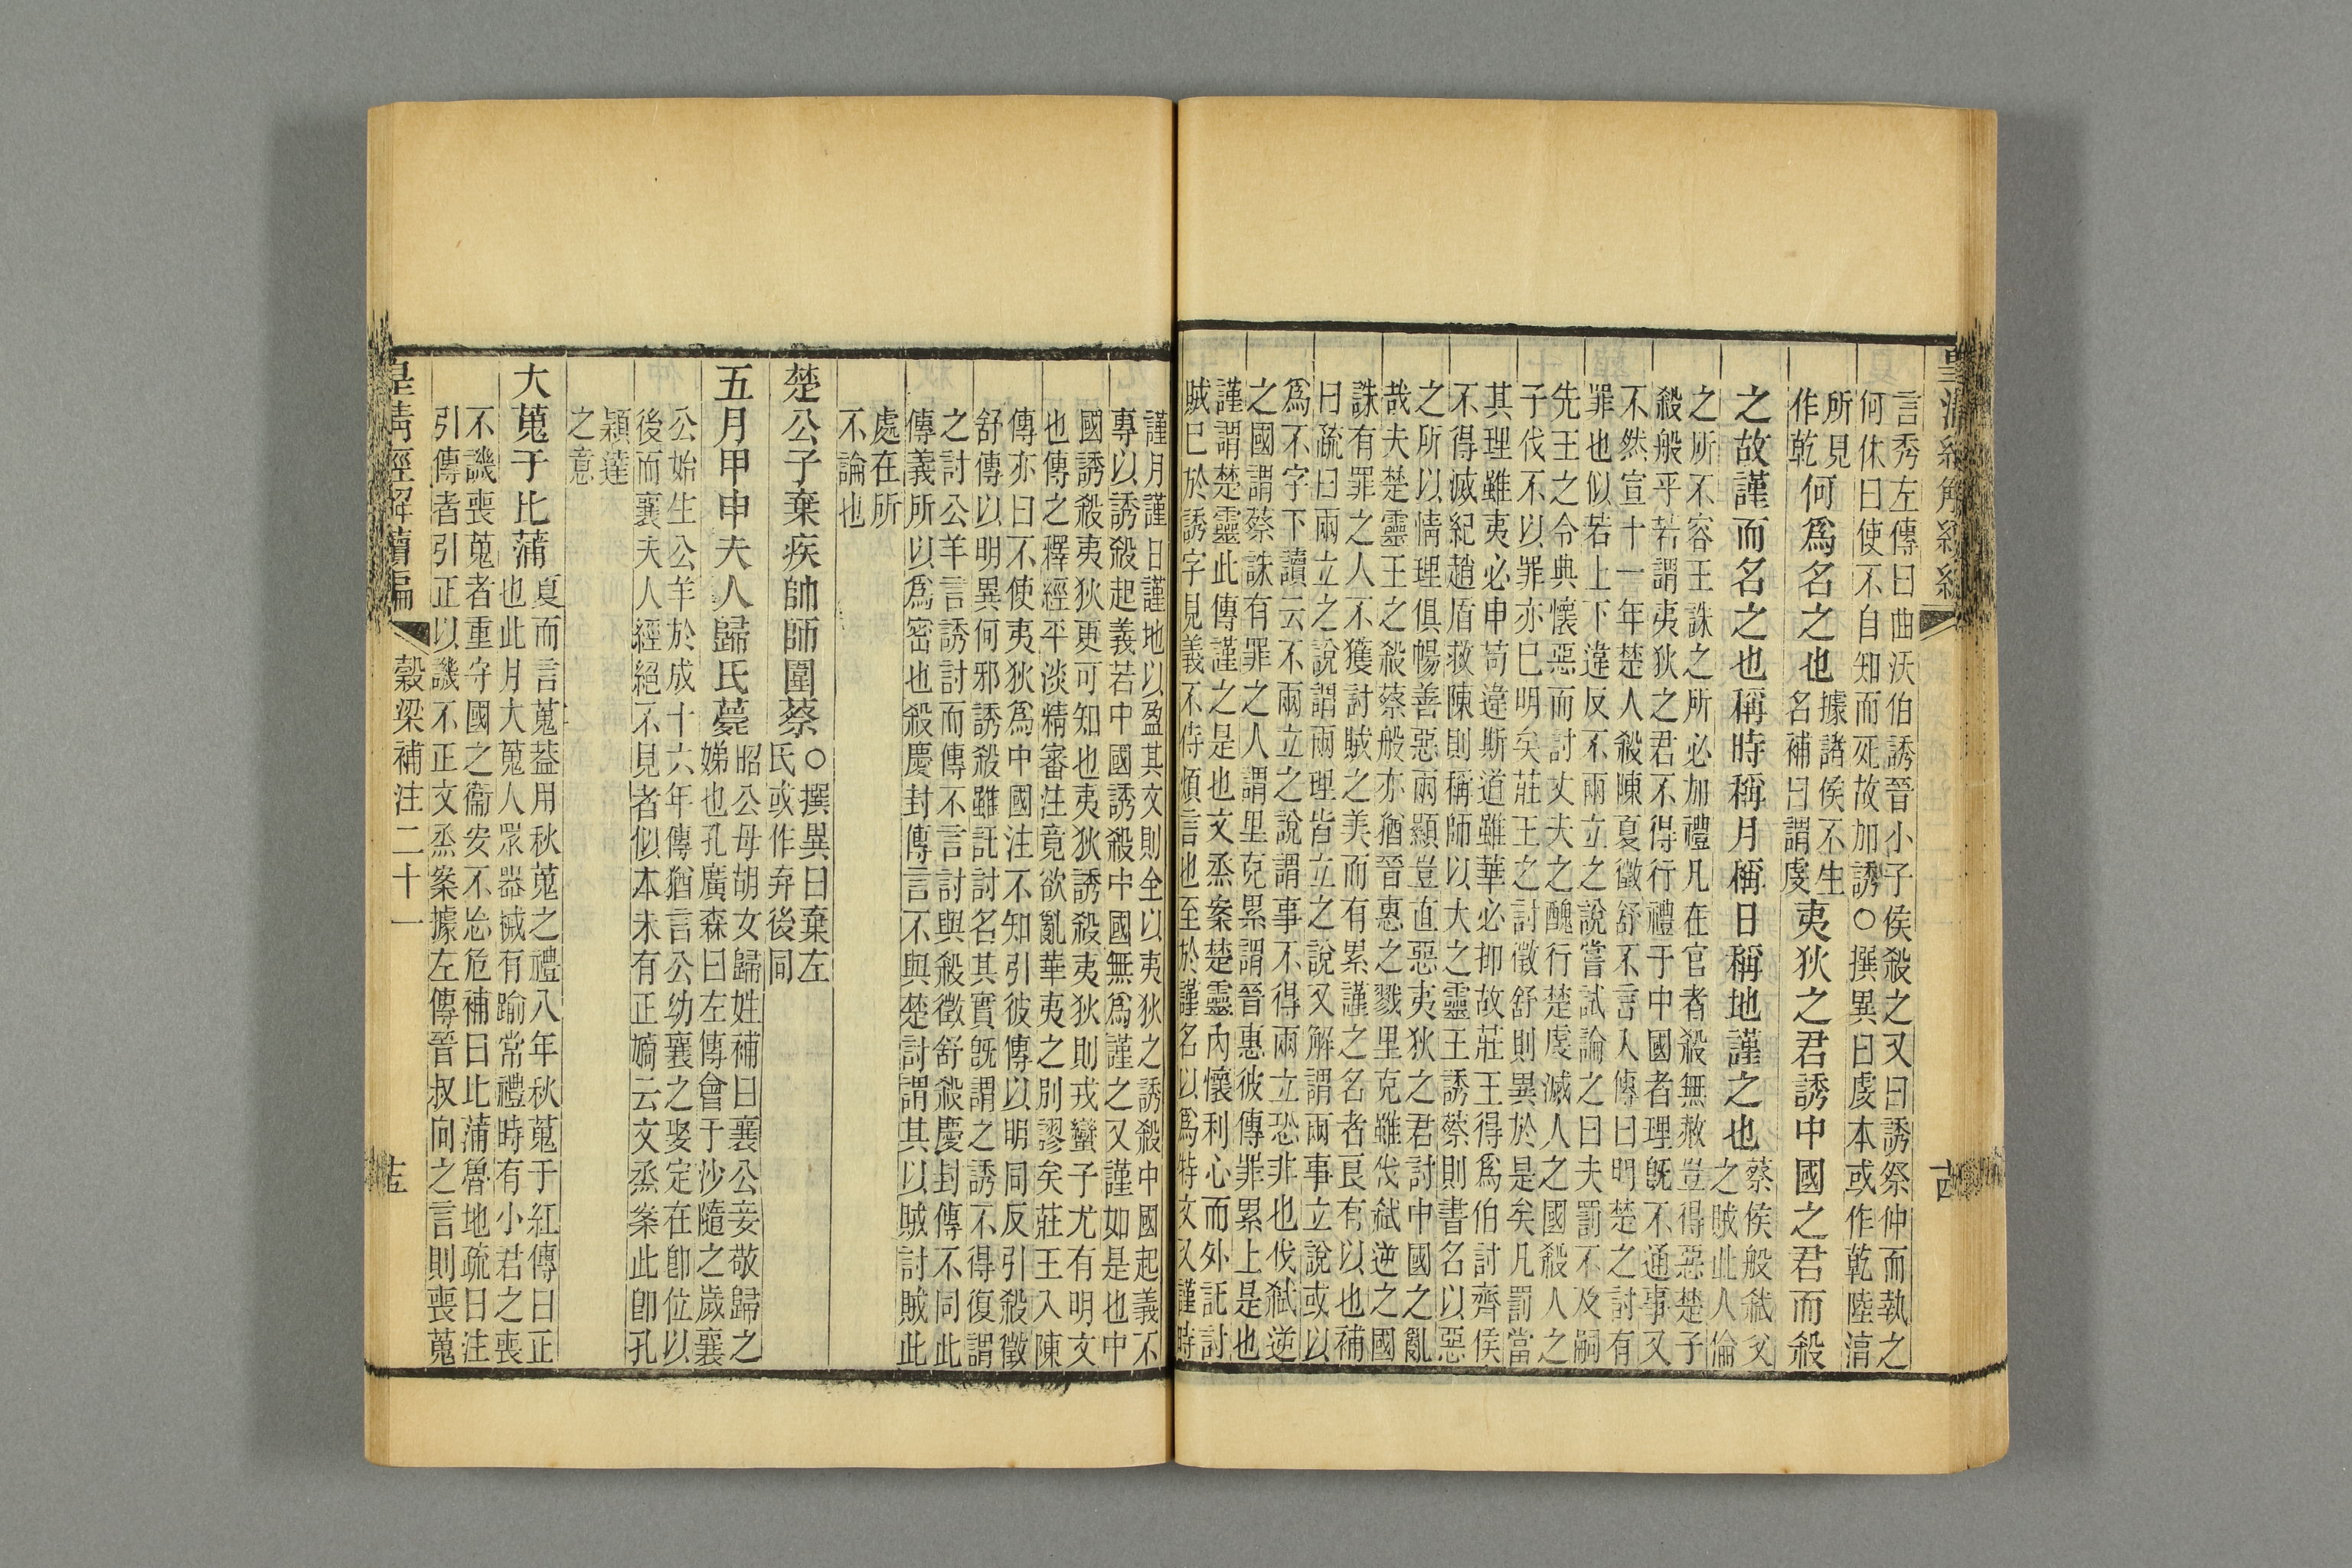 言秀左傳曰曲沃伯誘晉小子侯殺之又曰誘祭仲而執之
何休曰使不自知而死故加誘○撰異曰虔本或作乾陸淳
所見
作乾
何爲名之也
據諸侯不生
名補曰謂虔
夷狄之君誘中國之君而殺
之故謹而名之也稱時稱月稱日稱地謹之也
蔡侯般弒父
之賊此人倫
之所不容王誅之所必加禮凡在官者殺無赦豈得惡楚子
殺般乎若謂夷狄之君不得行禮于中國者理既不通事又
不然宣十一年楚人殺陳夏徵舒不言入傳曰明楚之討有
罪也似若上下違反不兩立之說嘗試論之曰夫罰不及嗣
先王之令典懷惡而討丈夫之醜行楚虔滅人之國殺人之
子伐不以罪亦已明矣莊王之討徵舒則異於是矣凡罰當
其理雖夷必申苟違斯道雖華必抑故莊王得爲伯討齊侯
不得滅紀趙盾救陳則稱師以大之靈王誘蔡則書名以惡
之所以情理俱暢善惡兩顯豈直惡夷狄之君討中國之亂
哉夫楚靈王之殺蔡般亦猶晉惠之戮里克雖伐弒逆之國
誅有罪之人不獲討賊之美而有累謹之名者良有以也補
曰疏曰兩立之說謂兩理皆立之說又解謂兩事立說或以
爲不字下讀云不兩立之說謂事不得兩立恐非也伐弒逆
之國謂蔡誅有罪之人謂里克累謂晉惠彼傳罪累上是也
謹謂楚靈此傳謹之是也文烝案楚靈內懷利心而外託討
賊已於誘字見義不待煩言也至於謹名以爲特文又謹時
謹月謹日謹地以盈其文則全以夷狄之誘殺中國起義不
專以誘殺起義若中國誘殺中國無爲謹之又謹如是也中
國誘殺夷狄更可知也夷狄誘殺夷狄則戎蠻子尤有明文
也傳之釋經平淡精審注竟欲亂華夷之別謬矣莊王入陳
傳亦曰不使夷狄爲中國注不知引彼傳以明同反引殺徵
舒傳以明異何邪誘殺雖託討名其實既謂之誘不得復謂
之討公羊言誘討而傳不言討與殺徵舒殺慶封傳不同此
傳義所以爲密也殺慶封傳言不與楚討謂其以賊討賊此
處在所
不論也
楚公子棄疾帥師圍蔡
○撰異曰棄左
氏或作弃後同
五月甲申夫人歸氏薨
昭公母胡女歸姓補曰襄公妾敬歸之
娣也孔廣森曰左傳會于沙隨之歲襄
公始生公羊於成十六年傳猶言公幼襄之娶定在卽位以
後而襄夫人經絕不見者似本未有正嫡云文烝案此卽孔
穎達
之意
大蒐于比蒲
夏而言蒐蓋用秋蒐之禮八年秋蒐于紅傳曰正
也此月大蒐人眾器械有踰常禮時有小君之喪
不譏喪蒐者重守國之衞安不忘危補曰比蒲魯地疏曰注
引傳者引正以譏不正文烝案據左傳晉叔向之言則喪蒐
皇清經解續編
穀梁補注二十一